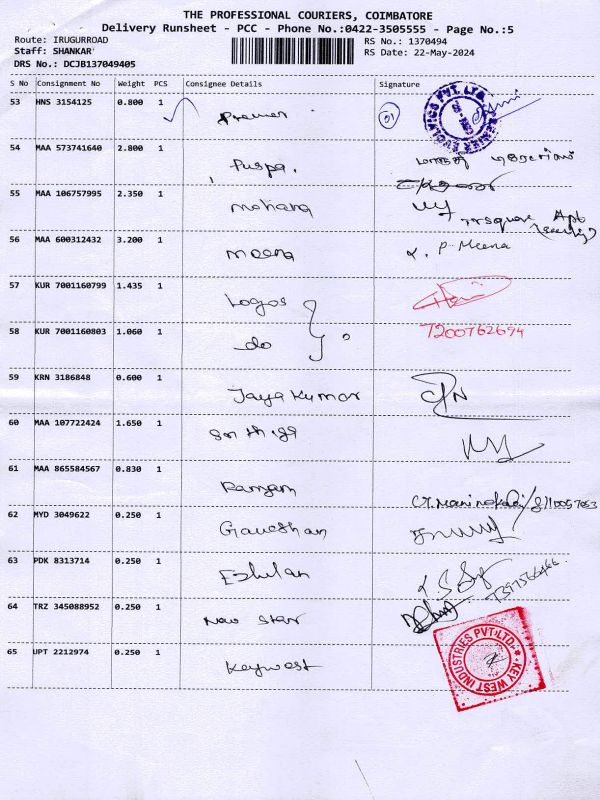 THE PROFESSIONAL COURIERS, COIMBATORE
Delivery Runsheet - PCC - Phone No.:0422-3505555 - Page No.:5
Route: IRUGURROAD
RS No.: 1370494
Staff: SHANKAR
RS Date: 22-May-2024
DRS No.: DCJB137049405
S No Consignment No Weight PCS Consignee Details Signature
53 HNS 3154125 0.800 1 Premier
54 MAA 573741640 2.800 1 Puspa.
55 MAA 106757995 2.350 1 Mohana
56 MAA 600312432 3.200 1 Meena P. Meena
57 KUR 7001160799 1.435 1 Logos
58 KUR 7001160803 1.060 1 do 7200762694
59 KRN 3186848 0.600 1 Jaya Kumar
60 MAA 107722424 1.650 1
61 MAA 865584567 0.830 1
62 MYD 3049622 0.250 1
63 PDK 8313714 0.250 1 Ezhilan
64 TRZ 345088952 0.250 1 New Star
65 UPT 2212974 0.250 1 Keywest
KEY WEST INDUSTRIES PVT.LTD.